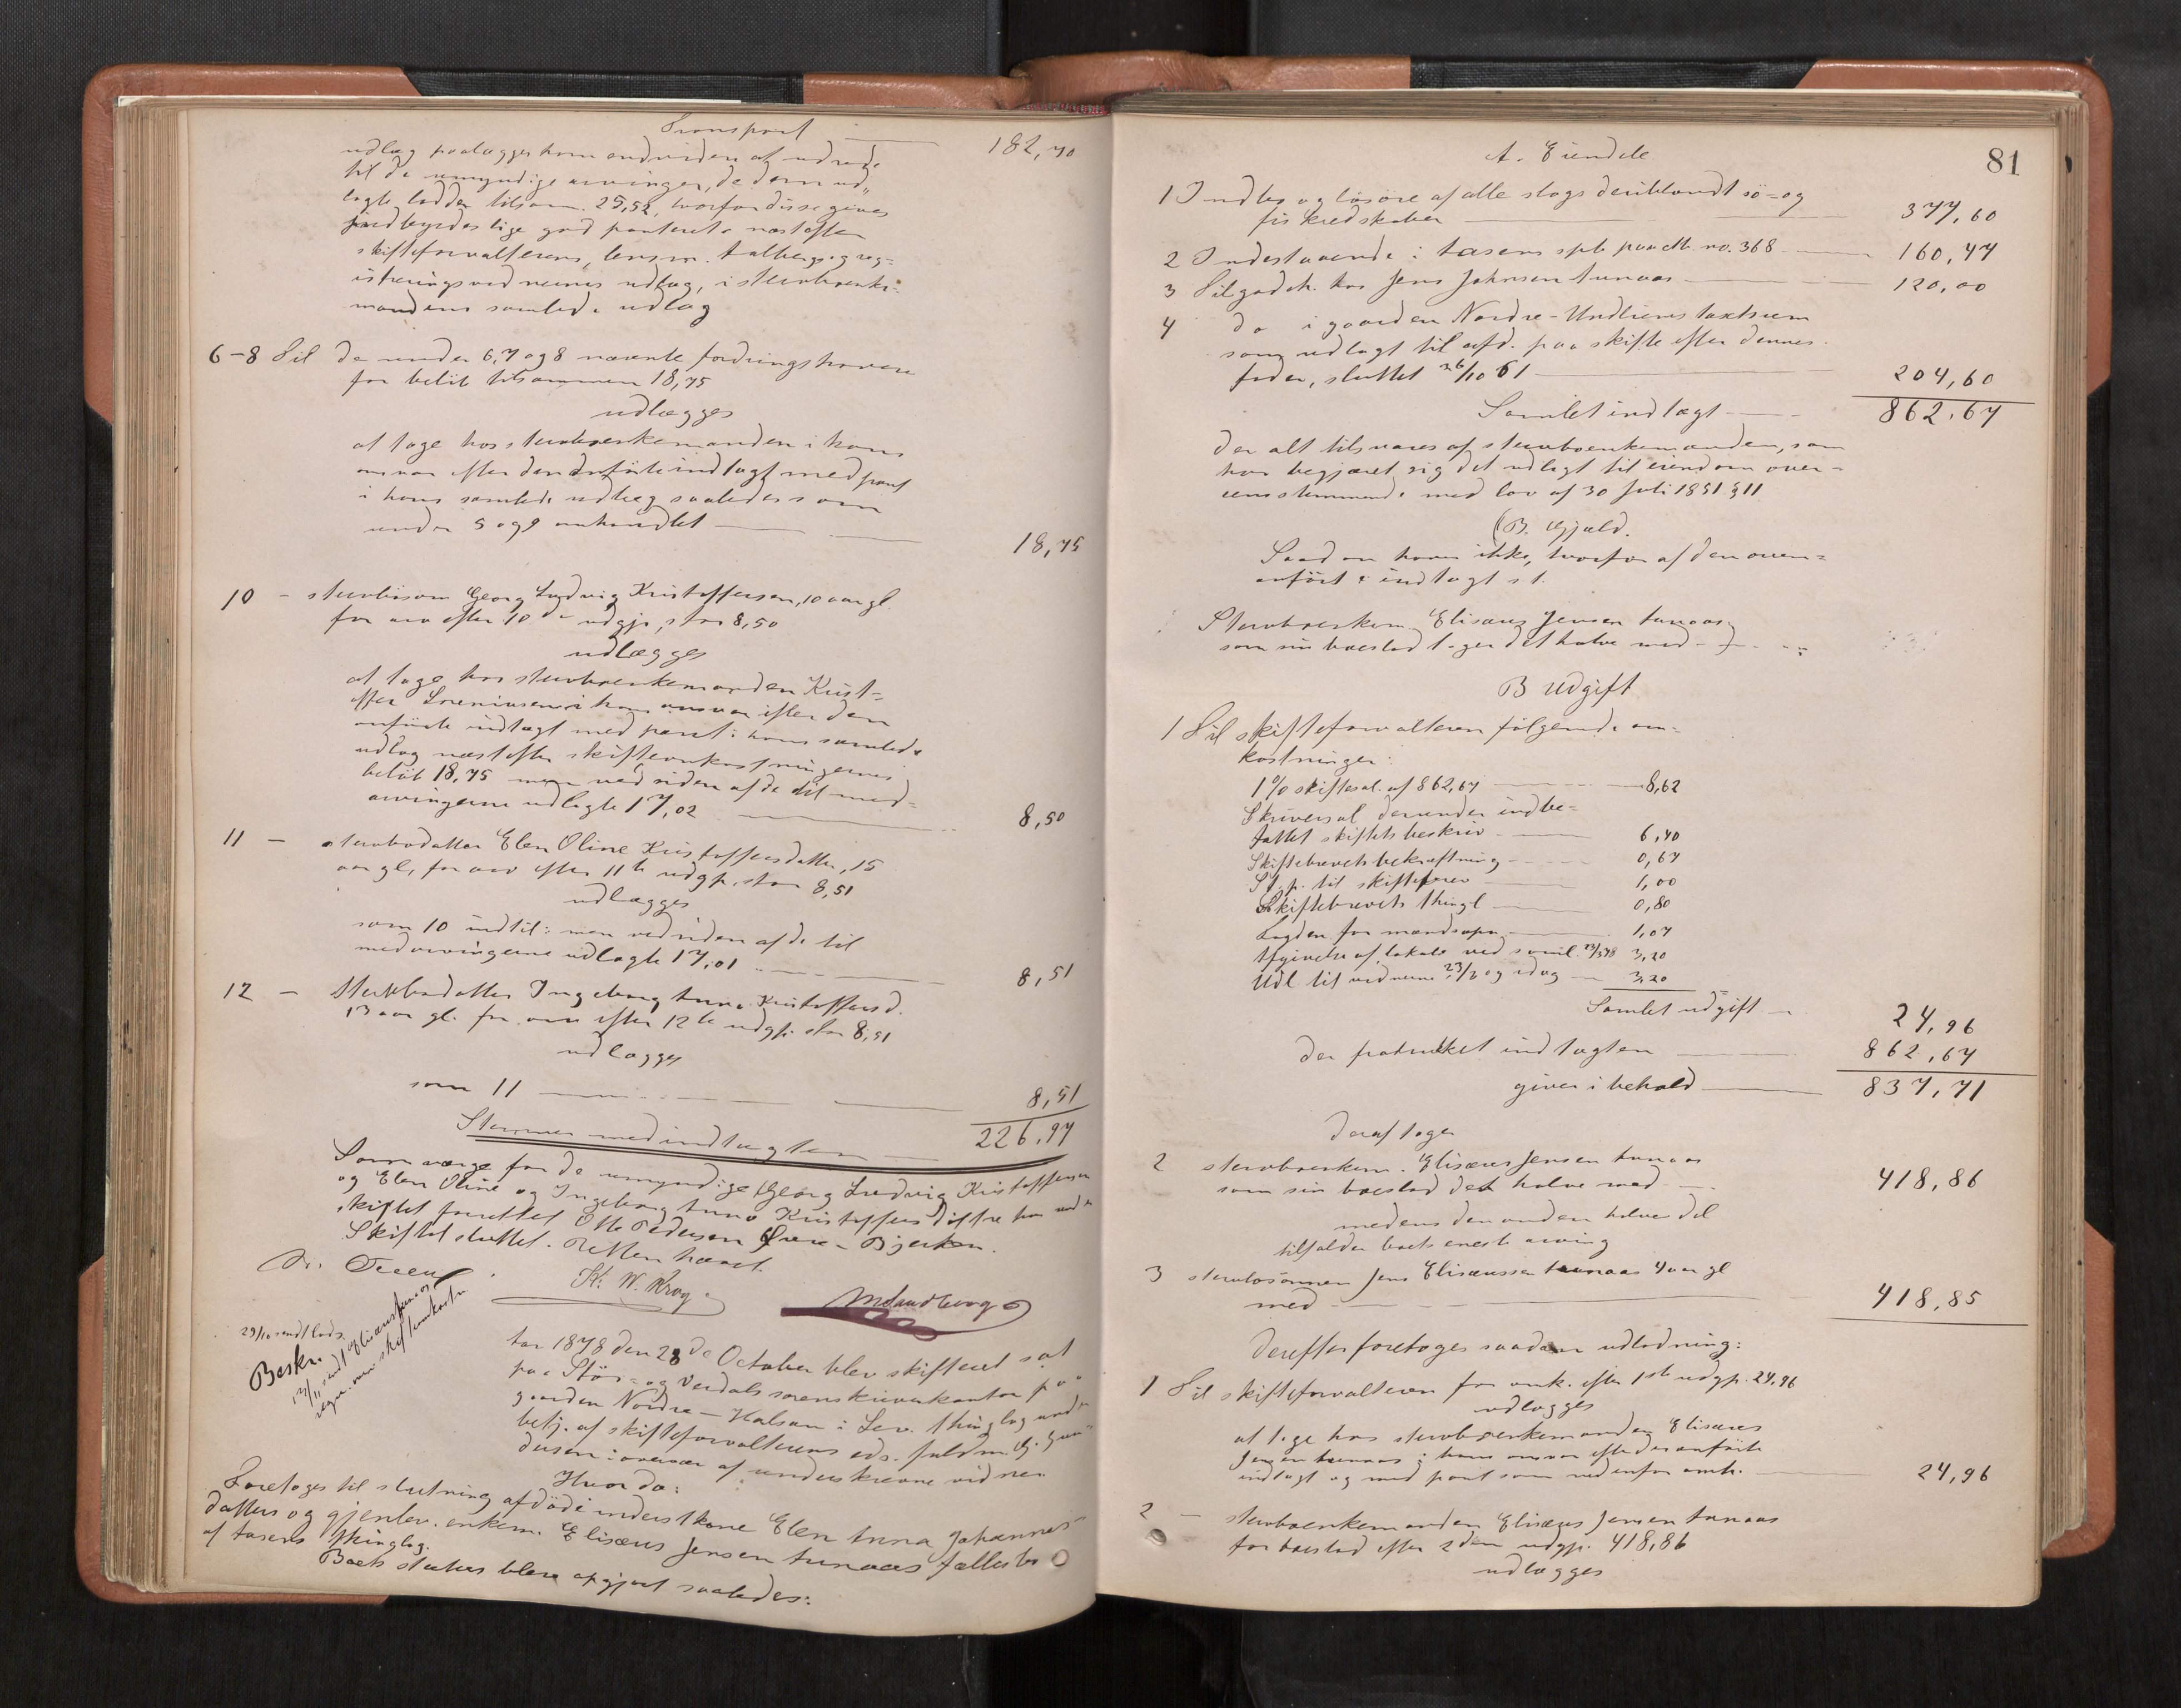 Transport 182,70
udlæg paalægges ham endvidere at udrede
til de umyndige arvinger, de dem ud„
lagte lodder tilsam. 25,52, hvorfor disse gives
indbyrdes lige god panteret næstefter
skifteforvalterens, lensm. Aalbergs og reg-
istreringsvidnernes udlæg, i stervboenke-
mandens samlede udlæg
6-8 Til de under 6, 7 og 8 nævnte fordringshavere
for beløb tilsammen 18,75
udlægges
at tage hos stervboenkemanden i hans
ansvar efter den anførte indtægt med pant
i hans samlede udlæg saaledes som
under 5 og 9 omhandlet 18,75
10 - sterbosøn Georg Ludvig Kristoffersen, 10 aar gl.
for arv efter 10de udgp. stor 8,50
udlægges
at tage hos stervboenkemanden Krist-
offer Loreniusen i hans ansvar efter den
anførte indtægt med pant i hans samlede
udlæg næstefter skifteomkostningernes
beløb 18,75 men ved siden af de til med-
arvingerne udlagte 17,02 8,50
11 - sterbodatter Elen Oline Kristoffersdatter, 15
aar gl., for arv efter 11te udgp. stor 8,51
udlægges
som 10 indtil: men ved siden af de til
medarvingerne udlagte 17,01 8,51
12 - Stervbodatter Ingeborg Anna Kristoffersd.
13 aar gl. for arv efter 12te udgp. stor 8,51
udlægges
som 11 8,51
Stemmer med indtægten 226,97
Som værge for de umyndige Georg Ludvig Kristoffersen
og Elen Oline og Ingeborg Anna Kristoffersdøttre har under
skiftet forrettet Otto Pedersen Øvre-Bjerken.
Skiftet sluttet. Retten hævet.
K. W. Krog. MSandberg
29/10 sendt lods.
Beskr.
Aar 1878 den 28de October blev skifteret sat
paa Stør- og Verdals sorenskriverkontor paa
gaarden Nordre-Halsan i Lev. thinglag under
betj. af skifteforvalterens eds. fuldm.
overvær af underskrevne vidner
Hvor da:
Foretoges til slutning afdøde inderstkone Elen Anna Johannes-
datters og gjenlev. enkem. Elisæus Jensen Aunaas fællesbo
af Aasens thinglag.
Boets status blev opgjort saaledes:
81
A. Eiendele
1 Indbo og løsøre af alle slags deriblandt sø- og
fiskeredskaber 377,60
2 Indestaaende i Aasens spb. paa ctb. no. 368 160,47
3 Tilgodeh. hos Jens Johnsen Aunaas 120,00
4 do i gaarden Nordre-Undliens taxtsum
som udlagt til afd. paa skifte efter dennes
fader, sluttet 26/10 61 204,60
Samlet indtægt 862,67
der alt tilsvares af sterboenkemanden, som
har begjæret sig det udlagt til eiendom over-
eensstemmende med lov af 30 Juli 1851 § 11
(B. Gjæld.
Saadan haves ikke, hvorfor af den oven-
anførte indtægt st.
Stervboenkem. Elisæus Jensen Aunaas,
som sin boeslod tager det halve med
B Udgift
1 Til skifteforvalteren følgende om-
kostninger:
1% skiftesal. af 862,67 8,62
Skriversal. derunder indbe-
fattet skiftets beskriv. 6,40
Skiftebrevets bekræftning 0,67
St.p. til skiftebrev 1,00
Skiftebrevets thingl. 0,80
Lagden for mandsopn. 1,07
Afgivelse af lokale ved saml. 23/3 78 3,20
Udl. til vidnerne 23/3 og idag 3,20
Samlet udgift 24,96
der fratrukket indtægten 862,67
giver i behold 837,71
deraf tager
2 stervboenkem. Elisæus Jensen Aunaas
som sin boeslod det halve med 418,86
medens den anden halve del
tilfalder boets eneste arving
3 stervbosønnen Jens Elisæussen Aunaas 4 aar gl
med 418,85
Derefter foretoges saadan udlodning:
1 Til skifteforvalteren for omk. efter 1ste udgp. 24,96
udlægges
at tage hos stervboenkemanden Elisæus
Jensen Aunaas i hans ansvar efter den anførte
indtægt og med pant som nedenfor omh. 24,96
2 - stervboenkemanden Elisæus Jensen Aunaas
for boeslod efter 2den udgp. 418,86
udlægges